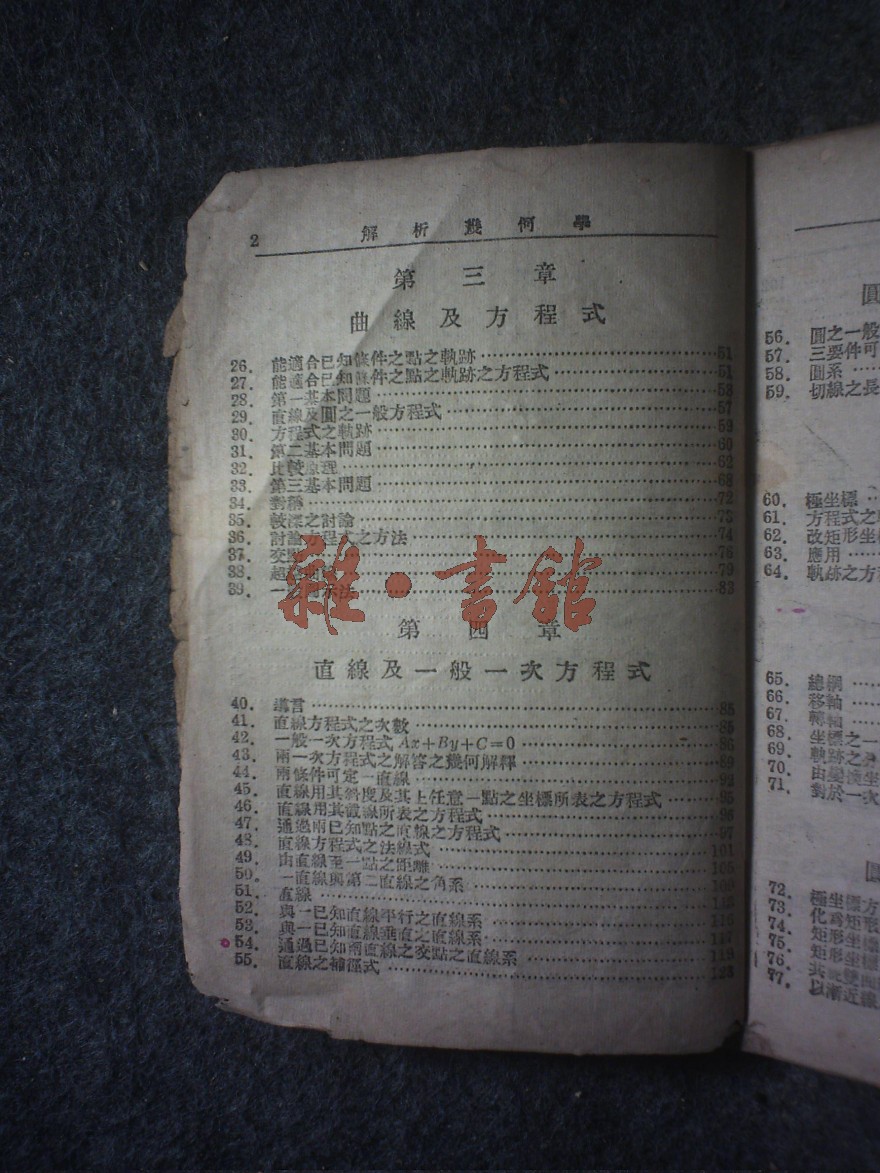 2 解析幾何學
第三章
曲線及方程式
26. 能適合已知條件之點之軌跡 51
27. 能適合已知條件之點之軌跡之方程式 51
28. 第一基本問題 53
29. 直線及圓之一般方程式 57
30. 方程式之軌跡 59
31. 第二基本問題 60
32. 比較原理 62
33. 第三基本問題 68
34. 對稱 72
35. 較深之討論 73
36. 討論方程式之方法 74
37. 交點 76
38. 79
39. 83
雜·書館
第四章
直線及一般一次方程式
40. 緒言 85
41. 直線方程式之次數 85
42. 一般一次方程式 Ax+By+C=0 86
43. 兩一次方程式之解答之幾何解釋 89
44. 兩條件可定一直線 92
45. 直線用其斜度及其上任意一點之坐標所表之方程式 95
46. 直線用其截線所表之方程式 96
47. 通過兩已知點之直線之方程式 97
48. 直線方程式之法線式 101
49. 由直線至一點之距離 105
50. 一直線與第二直線之角系 109
51. 直線
52. 與一已知直線平行之直線系
53. 與一已知直線垂直之直線系 117
54. 通過已知兩直線之交點之直線系 119
55. 直線之補徑式 123
圓
56. 圓之一般
57. 三要件可
58. 圓系
59. 切線之長
60. 極坐標
61. 方程式之
62. 改矩形坐標
63. 應用
64. 軌跡之方程
65. 總綱
66. 移軸
67. 轉軸
68. 坐標之一
69. 軌跡之
70. 由變換坐
71. 對於一次
72. 極坐標方
73. 化為矩形
74. 矩形坐標
75. 矩形坐標
76. 共軛雙曲
77. 以漸近線